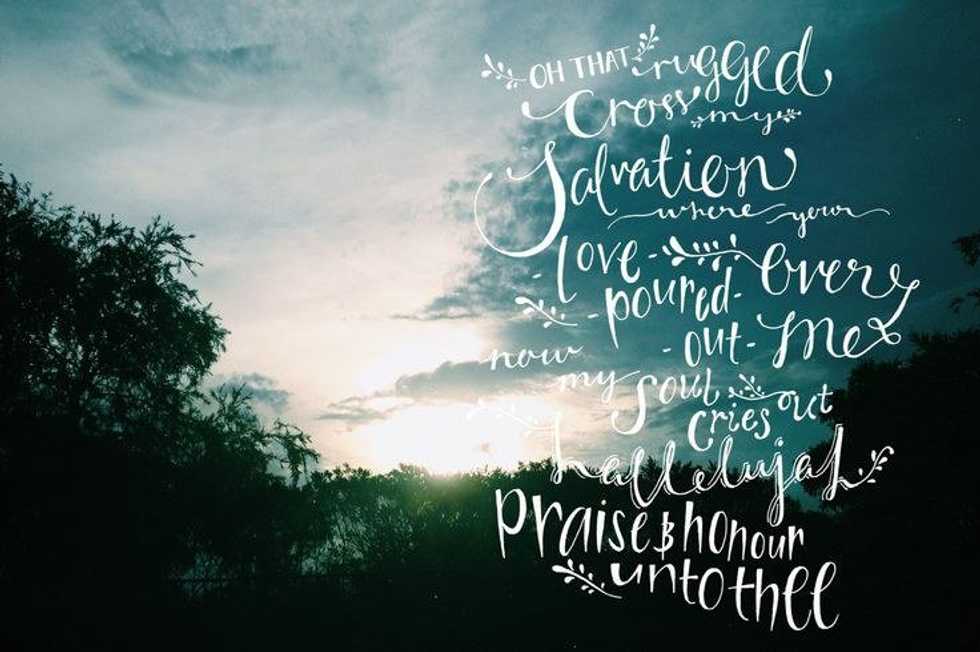 OH THAT rugged
Cross my
Salvation
where your
love poured out
over me
now my soul
cries out
hallelujah
praise & honour
unto thee